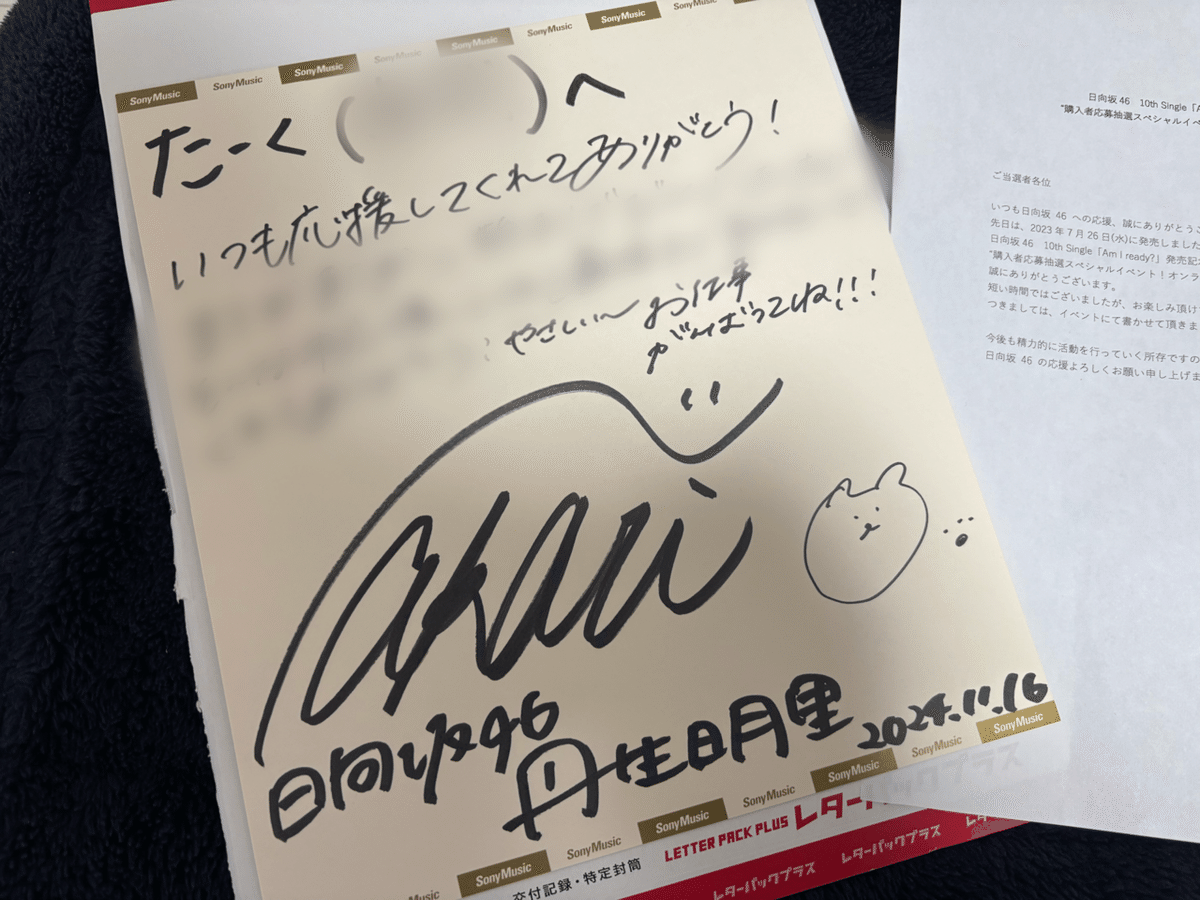 SonyMusic SonyMusic SonyMusic SonyMusic SonyMusic SonyMusic SonyMusic SonyMusic
たーく( )へ
いつも応援してくれてありがとう!
やさしい〜お仕事
がんばってね!!!
akari
日向坂46
丹生明里
2024.11.16
SonyMusic SonyMusic SonyMusic SonyMusic SonyMusic SonyMusic SonyMusic
LETTER PACK PLUS レターパックプラス
交付記録・特定封筒
レターパックプラス レターパックプラス
日向坂46 10th Single「A
"購入者応募抽選スペシャルイベ
ご当選者各位
いつも日向坂 46 への応援、誠にありがとうご
先日は、2023年7月26日(水)に発売しました
日向坂46 10th Single「Am I ready?」発売記
"購入者応募抽選スペシャルイベント!オンラ
誠にありがとうございます。
短い時間ではございましたが、お楽しみ頂け
つきましては、イベントにて書かせて頂きま
今後も精力的に活動を行っていく所存ですの
日向坂 46 の応援よろしくお願い申し上げま